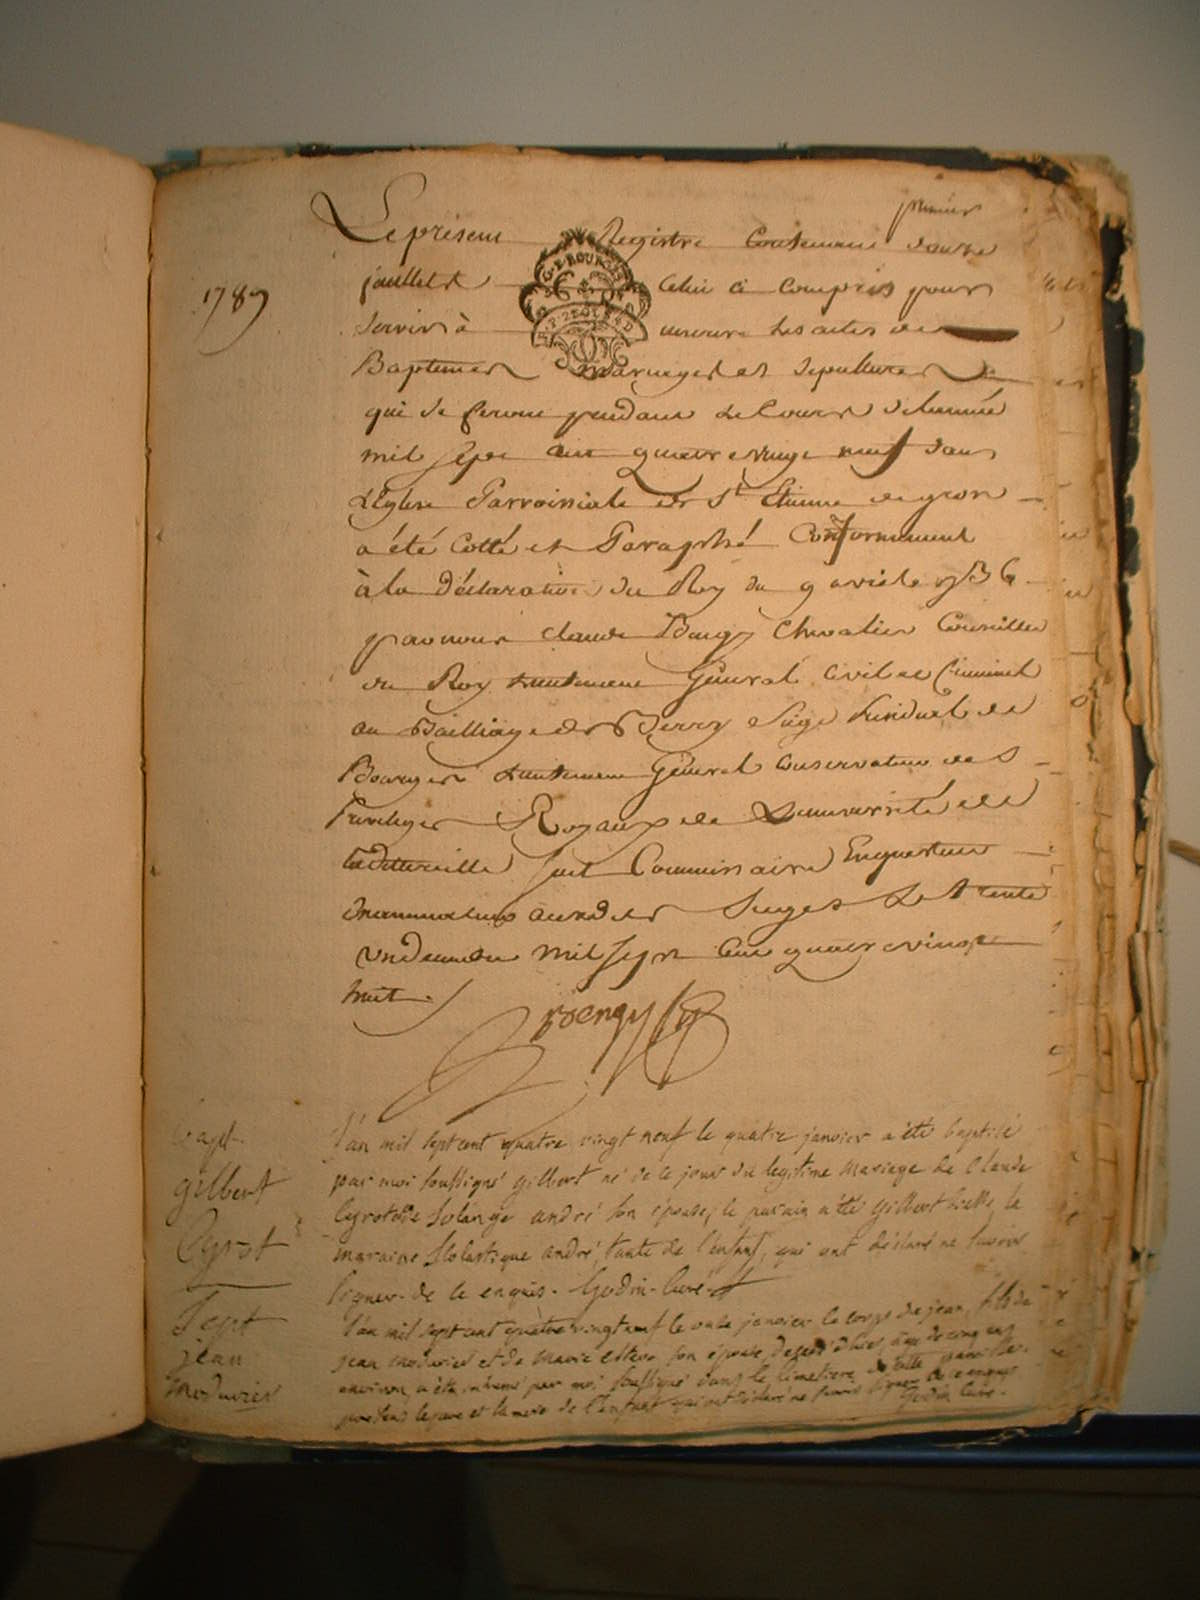 premier
Le présent Registre Contenant douze
1789
feuillets Celui ci compris pour
servir à inscrire les actes de
Baptemes mariages et sepultures
qui se feront pendant le Cours de l'année
mil sept cent quatre vingt neuf dans
L'Eglise Parroissiale de St Etienne de gron
a été Cotté et Paraphé Conformement
à la Déclaration du Roy du 9 avril 1736
par nous Claude Bengy Chevalier Conseiller
du Roy Lieutenant Général Civil et Criminel
au Bailliage de Berry Siège Présidial de
Bourges Lieutenant Général Conservateur des
Privileges Royaux de L'université de
laditte ville Commissaire Enqueteur
Examinateur auxdits Sieges Le trente
un decembre mil sept cent quatre vingt
huit.
Bengy
bapt
gilbert
Cyrot
L'an mil sept cent quatre vingt neuf le quatre janvier a été baptisé
par moi soussigné gilbert né de ce jour du legitime mariage de Claude
Cyrot et de Solange andré son épouse, le parain a été gilbert la
maraine Scolastique andré, tante de l'enfant, qui ont déclaré ne savoir
signer de ce enquis. Godin curé
Sept
jean
moduvier
L'an mil sept cent quatre vingt neuf le onze janvier le corps de jean, fils de
jean moduvier et de marie esteve son épouse decedé d'hier, agé de cinq ans
environ a été inhumé par moi soussigné dans le cimetiere de cette paroisse
presens le pere et la mere de l'enfant qui ont déclaré ne savoir signer de ce enquis
Godin curé.